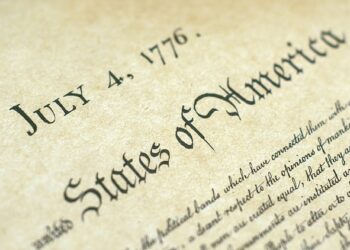 July 4, 1776.
States of America
political bands which have connected them with
a decent respect to the opinions of mankind
men are created equal, that they a
ments are instituted a
to alter or to